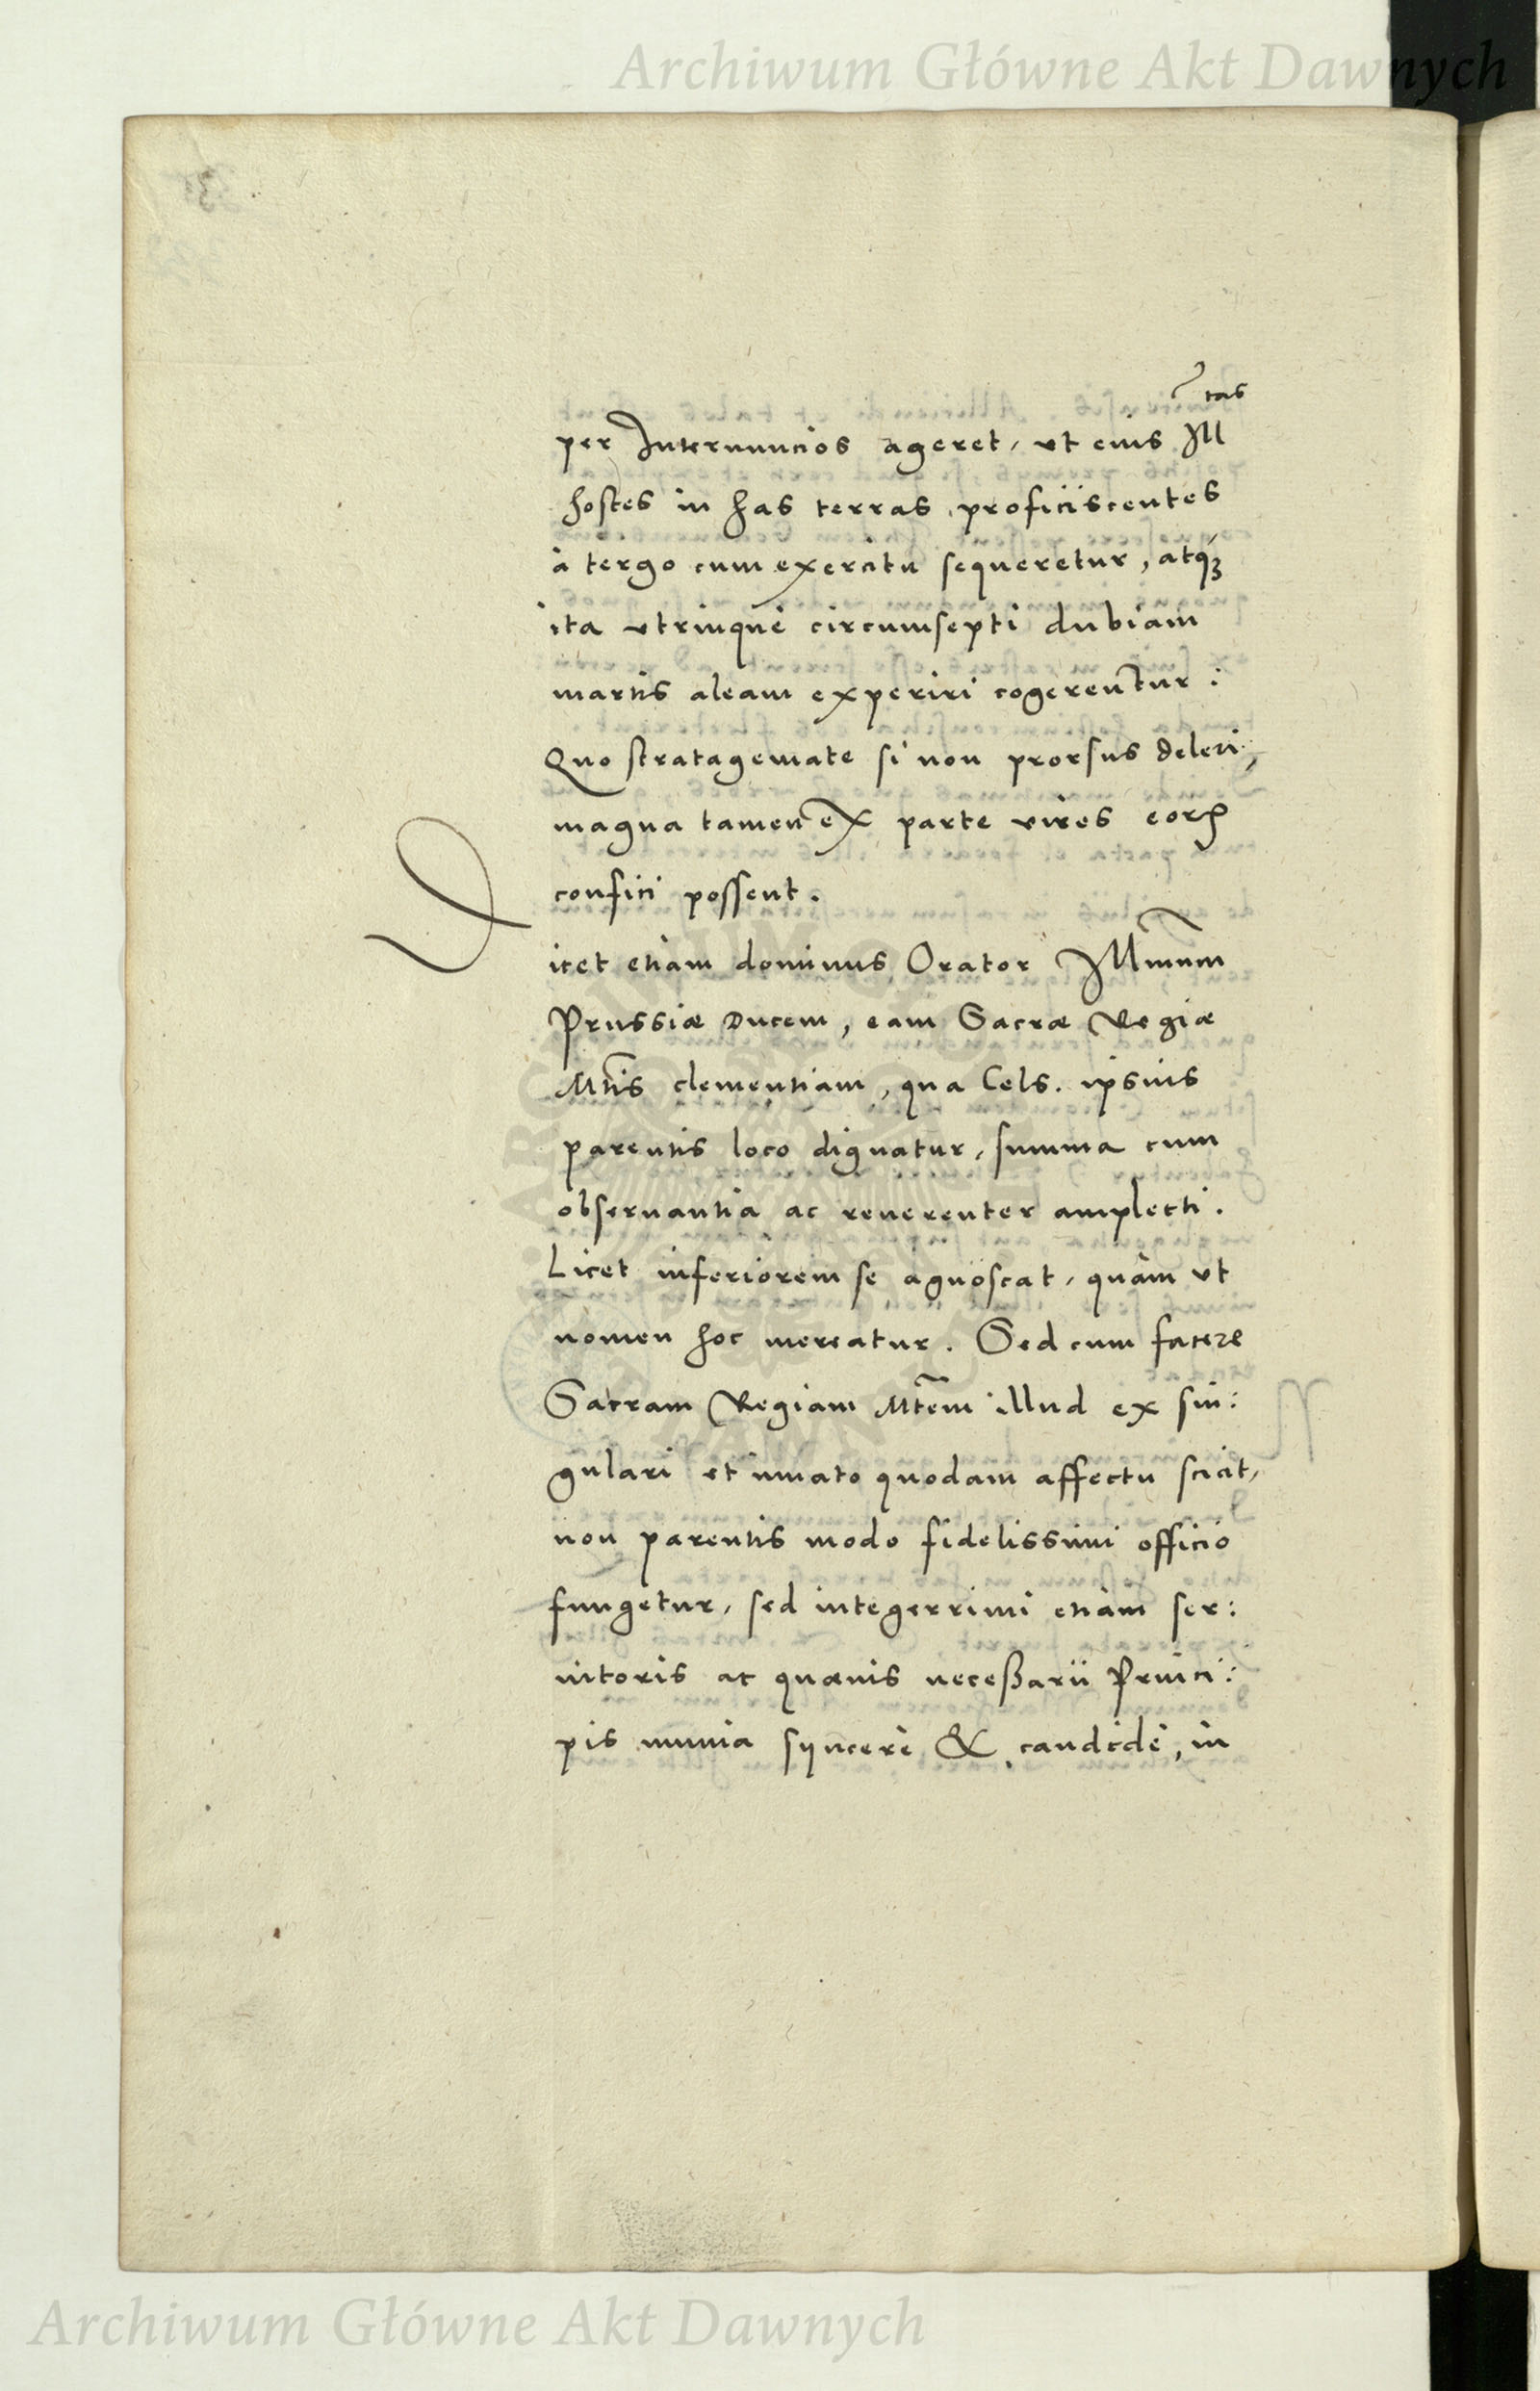 Archiwum Główne Akt Dawnych
per Internuncios ageret, vt eius Ill^tas
hostes in has terras proficiscentes
à tergo cum exercitu sequeretur, atqꝫ
ita vtrinque circumsepti dubiam
martis aleam experiri cogerentur:
Quo stratagemate si non prorsus deleri,
magna tamen ex parte vires eorꝝ
confici possent.
Dicet etiam dominus Orator Illmum
Prussiæ Ducem, eam Sacræ Regiæ
Mtis clementiam, qua Cels. ipsius
parentis loco dignatur, summa cum
obseruantia ac reuerenter amplecti.
Licet inferiorem se agnoscat, quàm vt
nomen hoc mereatur. Sed cum facere
Sacram Regiam Mtem illud ex sin:
gulari et innato quodam affectu sciat,
non parentis modo fidelissimi officio
fungetur, sed integerrimi etiam ser:
uitoris ac quæuis neceßarii Princi:
pis munia syncerè & candidè, in
Archiwum Główne Akt Dawnych